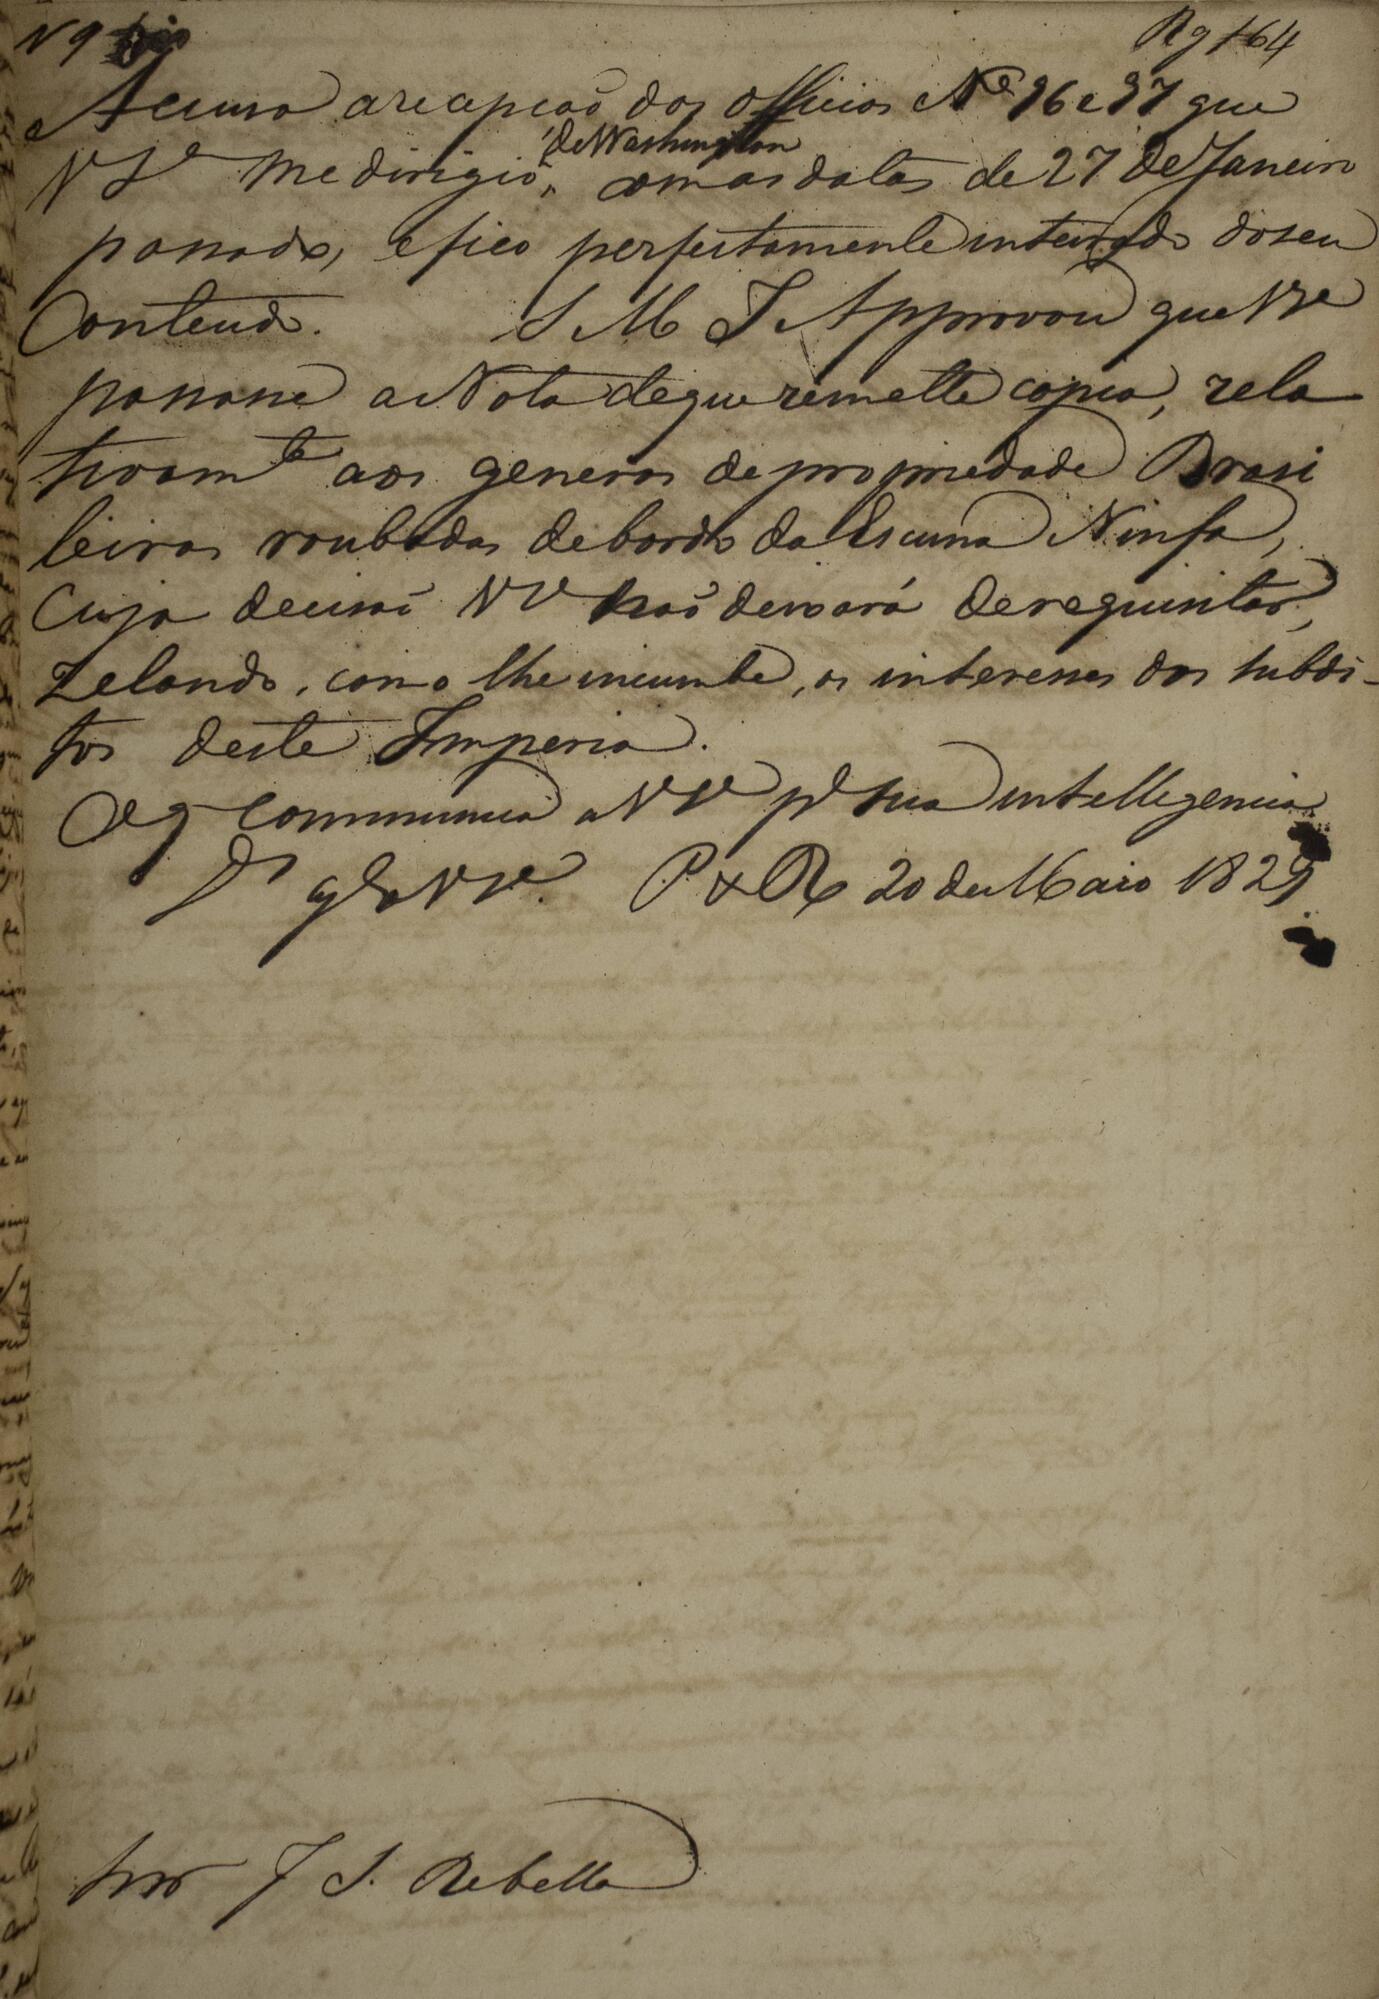 N 9
Rg 164
Accuso a recepçaõ dos Officios Nos 96 e 97 que
de Washington
V Sa me dirigio, com as datas de 27 de Janeiro
passado, e fico perfeitamente inteirado do seu
Contendo. S M I Approvou que VSa
passasse a Nota de que remette copia, rela
tivamte aos generos de propriedade Brasi
leiras roubadas de bordo da Escuna Ninfa,
Cuja decisaõ VSa naõ deixará de requisitar,
zelando, como lhe incumbe, os interesses dos subdi-
tos deste Imperio.
O q communico a VSa pa sua intelligencia
Ds gde a VSa. P. 20 de Maio 1829
Snr J S. Rebello